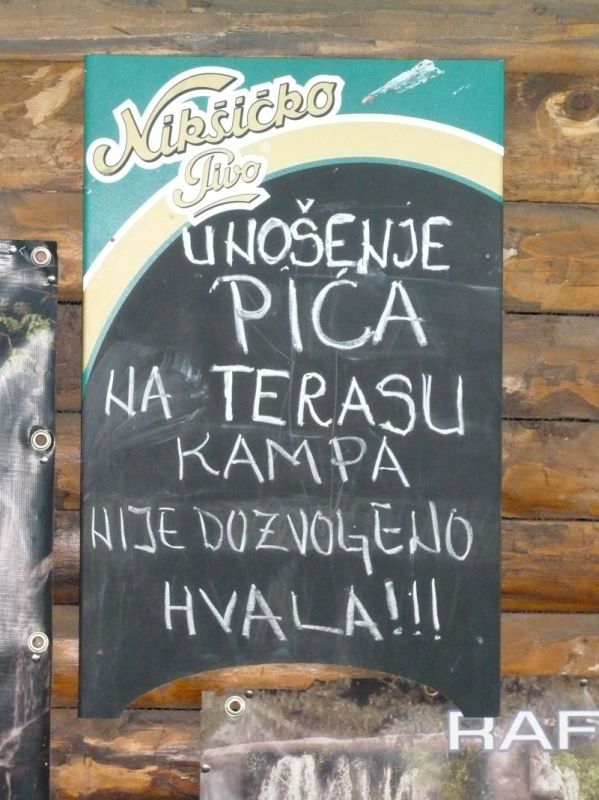 Nikšičko
Pivo ®
UNOŠENJE
PIĆA
NA TERASU
KAMPA
NIJE DOZVOLJENO
HVALA!!!
RAF